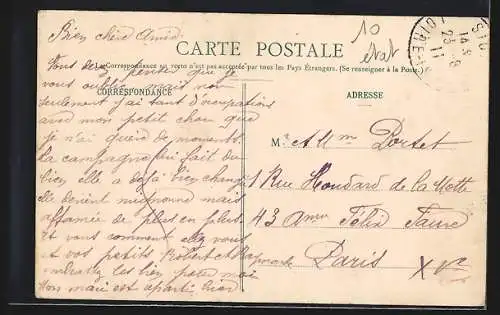 Bien chère Amie
10
état
CARTE POSTALE
La Correspondance au recto n'est pas acceptée par tous les Pays Étrangers. (Se renseigner à la Poste.)
CORRESPONDANCE
ADRESSE
Vous devez penser que je
vous oublie mais non
seulement j'ai tant d'occupations
avec mon petit chou que
je n'ai guère de moments
La campagne lui fait du
bien elle a déjà bien changé
elle devient mignonne mais
affamée de plus en plus.
Et vous comment allez vous
et vos petits Robert et Raymonde
embrassez les bien pour moi
Mon mari est aparti hier
M. et Mme Portet
1 Rue Houdard de la Motte
43 Aven Félix Faure
Paris XV